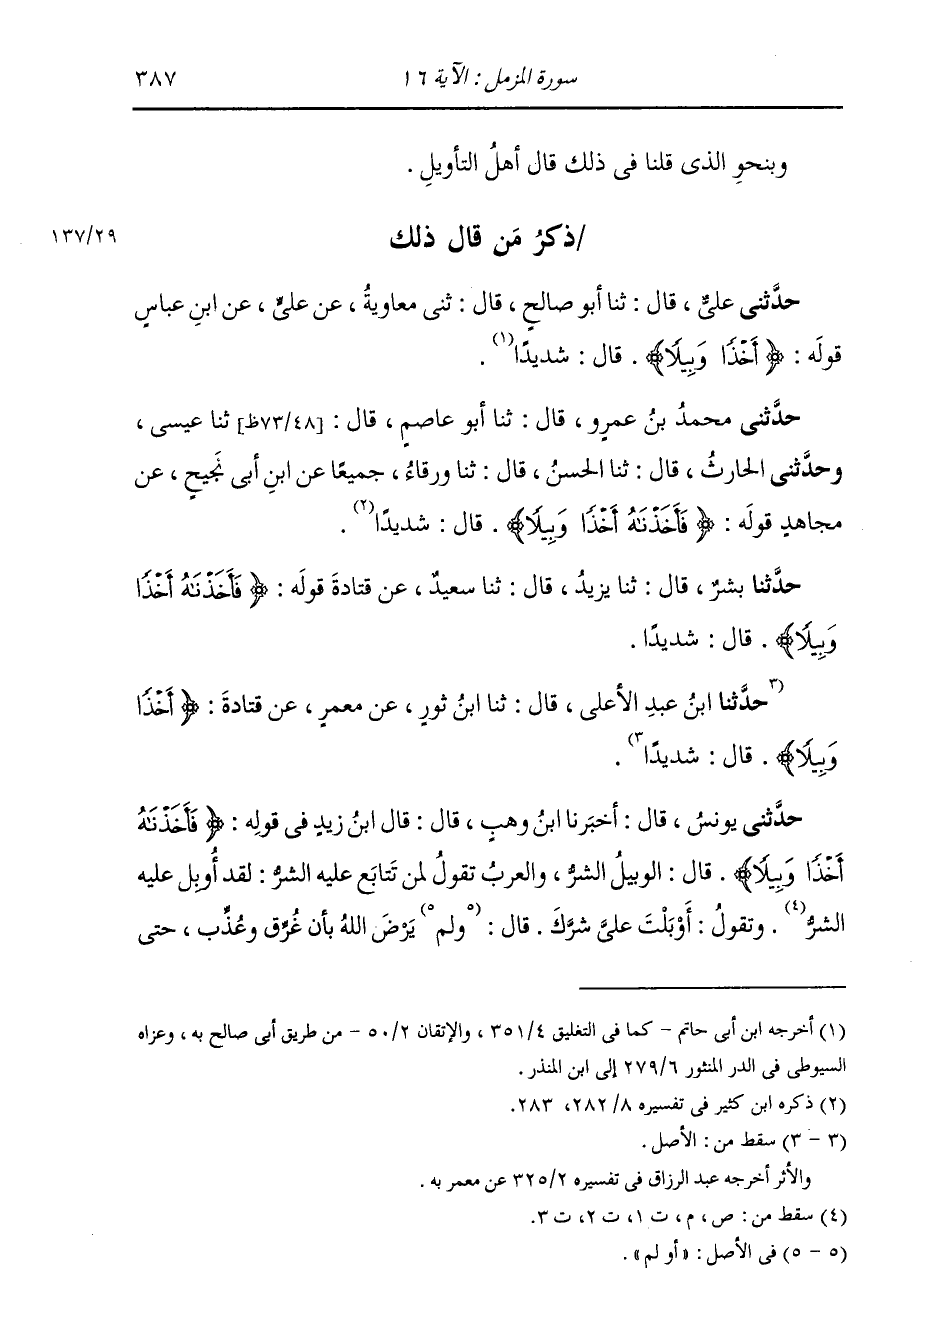 سورة المزمل : الآية ١٦
٣٨٧
وبنحوِ الذى قلنا فى ذلك قال أهلُ التأويلِ .
/ذكرُ مَن قال ذلك
١٣٧/٢٩
حدَّثنى علىٌّ ، قال : ثنا أبو صالحٍ ، قال : ثنى معاويةُ ، عن علىٍّ ، عن ابنِ عباسٍ
قولَه : ﴿ أَخْذًا وَبِيلًا﴾ . قال : شديدًا(١) .
حدَّثنى محمدُ بنُ عمرٍو ، قال : ثنا أبو عاصمٍ ، قال : [٧٣/٤٨ظ] ثنا عيسى ،
وحدَّثنى الحارثُ ، قال : ثنا الحسنُ ، قال : ثنا ورقاءُ ، جميعًا عن ابنِ أبى نَجيحٍ ، عن
مجاهدٍ قولَه : ﴿ فَأَخَذْنَٰهُ أَخْذًا وَبِيلًا﴾ . قال : شديدًا(٢) .
حدَّثنا بشرٌ ، قال : ثنا يزيدُ ، قال : ثنا سعيدٌ ، عن قتادةَ قولَه : ﴿ فَأَخَذْنَٰهُ أَخْذًا
وَبِيلًا﴾ . قال : شديدًا .
(٣حدَّثنا ابنُ عبدِ الأعلى ، قال : ثنا ابنُ ثورٍ ، عن معمرٍ ، عن قتادةَ : ﴿ أَخْذًا
وَبِيلًا﴾ . قال : شديدًا٣) .
حدَّثنى يونسُ ، قال : أخبَرنا ابنُ وهبٍ ، قال : قال ابنُ زيدٍ فى قولِه : ﴿ فَأَخَذْنَٰهُ
أَخْذًا وَبِيلًا﴾ . قال : الوبيلُ الشرُّ ، والعربُ تقولُ لمن تَتابَع عليه الشرُّ : لقد أُوبِل عليه
الشرُّ(٤) . وتقولُ : أَوْبَلْتَ علىَّ شرَّكَ . قال : (٥ولم٥) يَرْضَ اللهُ بأن غُرِّق وعُذِّب ، حتى
(١) أخرجه ابن أبى حاتم – كما فى التغليق ٣٥١/٤ ، والإتقان ٥٠/٢ – من طريق أبى صالح به ، وعزاه
السيوطى فى الدر المنثور ٢٧٩/٦ إلى ابن المنذر .
(٢) ذكره ابن كثير فى تفسيره ٨/ ٢٨٢، ٢٨٣.
(٣ – ٣) سقط من : الأصل .
والأثر أخرجه عبد الرزاق فى تفسيره ٣٢٥/٢ عن معمر به .
(٤) سقط من : ص ، م ، ت ١، ت ٢، ت ٣.
(٥ – ٥) فى الأصل : «أو لم» .